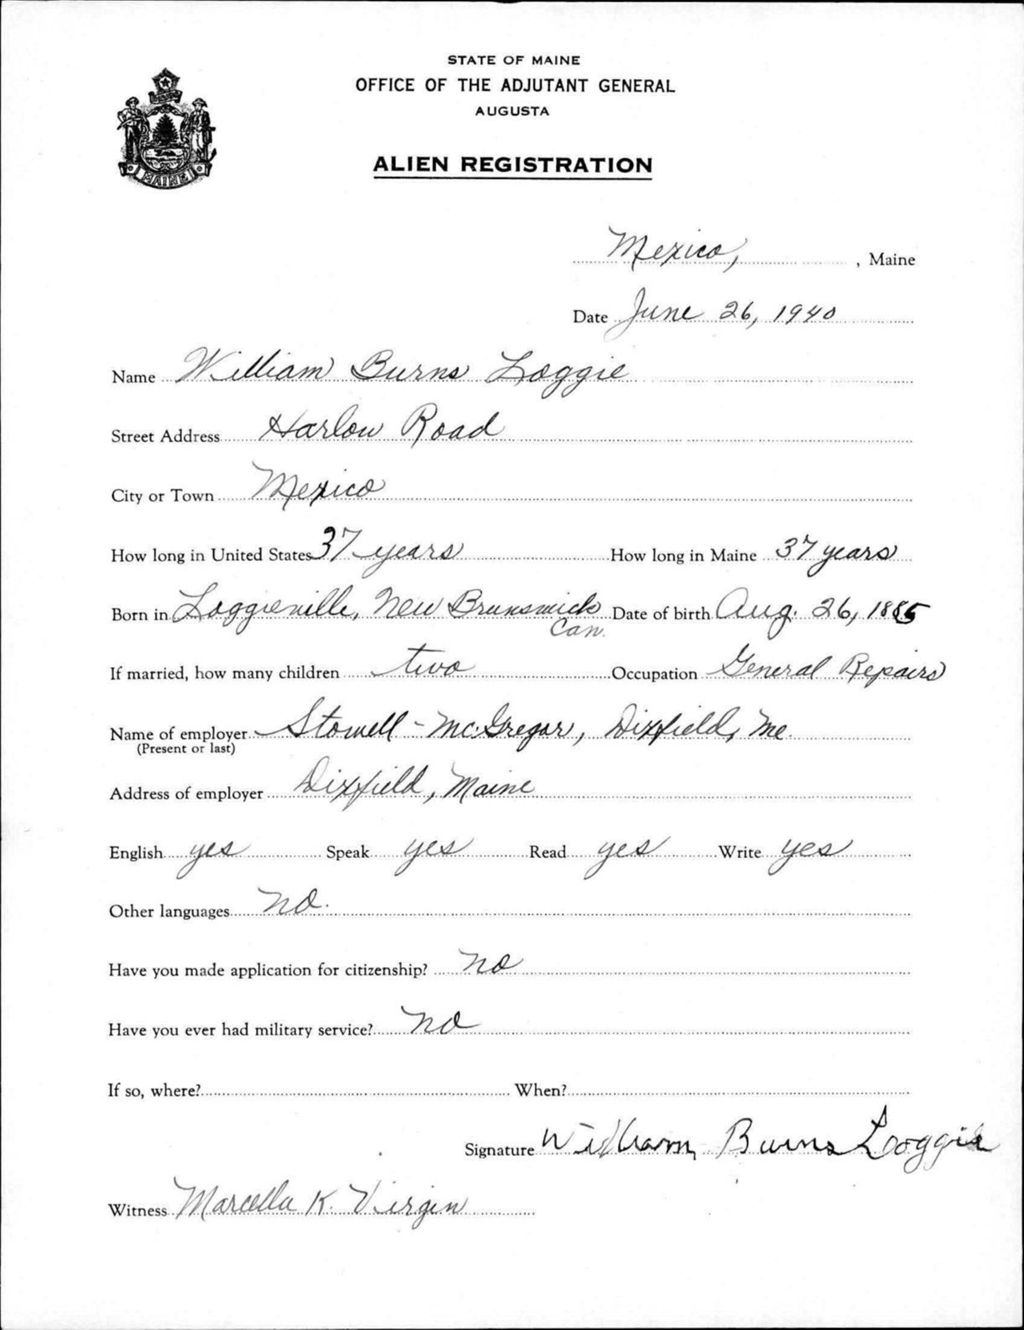 STATE OF MAINE
OFFICE OF THE ADJUTANT GENERAL
AUGUSTA
ALIEN REGISTRATION
MAINE
Mexico, , Maine
Date June 26, 1940
Name William Burns Loggie
Street Address Harlow Road
City or Town Mexico
How long in United States 37 years How long in Maine 37 years
Born in Loggieville, New Brunswick Date of birth Aug. 26, 1885
Can.
If married, how many children two Occupation General Repairs
Name of employer Stowell-McGregor, Dixfield, Me.
(Present or last)
Address of employer Dixfield, Maine
English yes Speak yes Read yes Write yes
Other languages no.
Have you made application for citizenship? no
Have you ever had military service? no
If so, where? When?
Signature William Burns Loggie
Witness Marcella K. Virgin